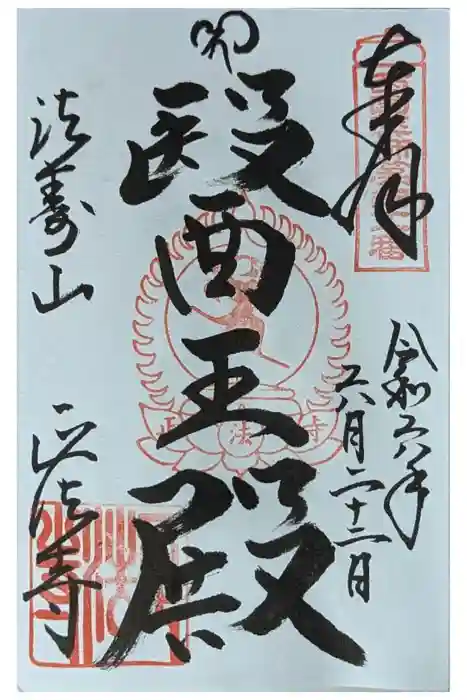 奉拝
令和六年
六月二十二日
醫王殿
正法寺
法壽山 正法寺